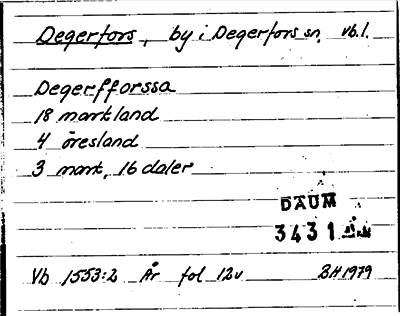 Degerfors, by i Degerfors sn, Vb.l.
Degerfforssa
18 markland
4 öresland
3 mark, 16 daler
DAUM
3431
Vb 1553:2 År fol 12v BH 1979